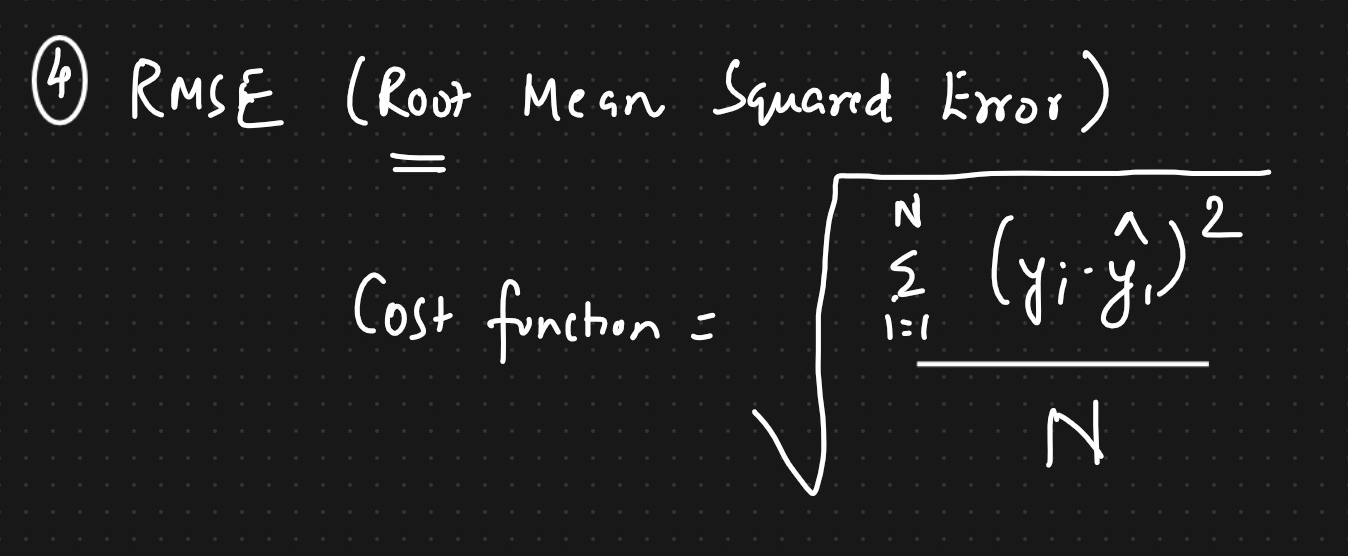 ④ RMSE (Root Mean Squared Error)
Cost function = √( N Σ i=1 (yᵢ - ŷᵢ)² / N )